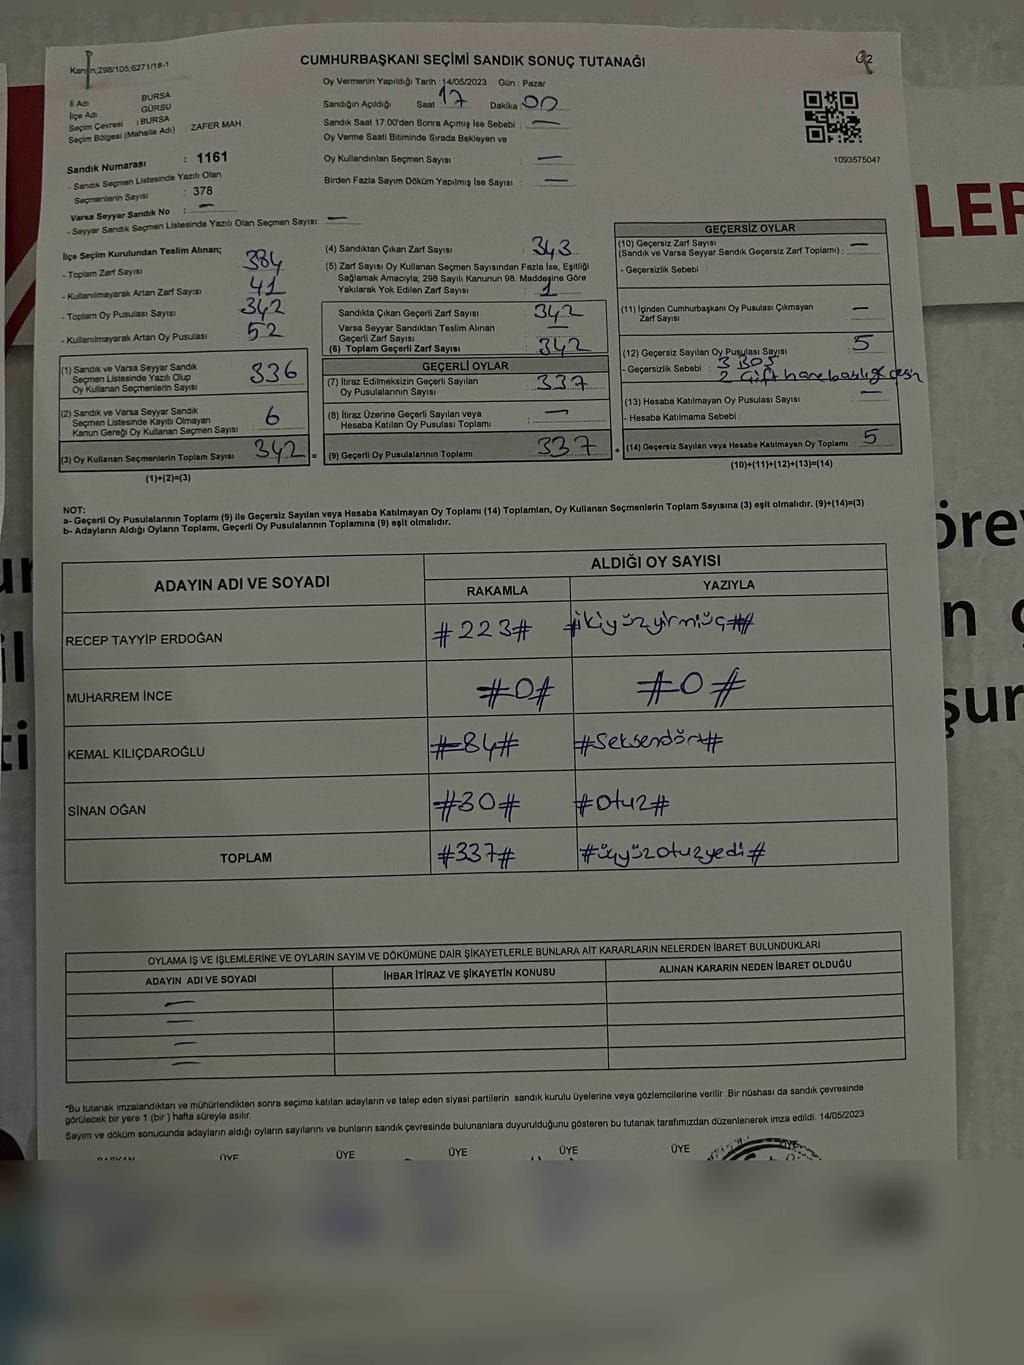 Kanun,298/105,6271/18-1
CUMHURBAŞKANI SEÇİMİ SANDIK SONUÇ TUTANAĞI
02
İl Adı BURSA
İlçe Adı GÜRSU
Seçim Çevresi : BURSA
Seçim Bölgesi (Mahalle Adı) : ZAFER MAH
Sandık Numarası : 1161
- Sandık Seçmen Listesinde Yazılı Olan
Seçmenlerin Sayısı : 378
Varsa Seyyar Sandık No : —
- Seyyar Sandık Seçmen Listesinde Yazılı Olan Seçmen Sayısı: —
Oy Vermenin Yapıldığı Tarih : 14/05/2023 Gün : Pazar
Sandığın Açıldığı Saat 17 Dakika : 00
Sandık Saat 17:00'den Sonra Açımış İse Sebebi : —
Oy Verme Saati Bitiminde Sırada Bekleyen ve
Oy Kullandırılan Seçmen Sayısı : —
Birden Fazla Sayım Döküm Yapılmış İse Sayısı : —
1093575047
LER
İlçe Seçim Kurulundan Teslim Alınan;
- Toplam Zarf Sayısı : 384
- Kullanılmayarak Artan Zarf Sayısı : 41
- Toplam Oy Pusulası Sayısı : 342
- Kullanılmayarak Artan Oy Pusulası : 52
(1) Sandık ve Varsa Seyyar Sandık
Seçmen Listesinde Yazılı Olup
Oy Kullanan Seçmenlerin Sayısı : 336
(2) Sandık ve Varsa Seyyar Sandık
Seçmen Listesinde Kayıtlı Olmayan
Kanun Gereği Oy Kullanan Seçmen Sayısı : 6
(3) Oy Kullanan Seçmenlerin Toplam Sayısı : 342 =
(1)+(2)=(3)
(4) Sandıktan Çıkan Zarf Sayısı : 343
(5) Zarf Sayısı Oy Kullanan Seçmen Sayısından Fazla İse, Eşitliği
Sağlamak Amacıyla; 298 Sayılı Kanunun 98. Maddesine Göre
Yakılarak Yok Edilen Zarf Sayısı : 1
Sandıkta Çıkan Geçerli Zarf Sayısı : 342
Varsa Seyyar Sandıktan Teslim Alınan
Geçerli Zarf Sayısı : —
(6) Toplam Geçerli Zarf Sayısı : 342
GEÇERLİ OYLAR
(7) İtiraz Edilmeksizin Geçerli Sayılan
Oy Pusulalarının Sayısı : 337
(8) İtiraz Üzerine Geçerli Sayılan veya
Hesaba Katılan Oy Pusulası Toplamı : —
(9) Geçerli Oy Pusulalarının Toplamı : 337 +
GEÇERSİZ OYLAR
(10) Geçersiz Zarf Sayısı
(Sandık ve Varsa Seyyar Sandık Geçersiz Zarf Toplamı) : —
- Geçersizlik Sebebi :
(11) İçinden Cumhurbaşkanı Oy Pusulası Çıkmayan
Zarf Sayısı : —
(12) Geçersiz Sayılan Oy Pusulası Sayısı : 5
- Geçersizlik Sebebi : 3 BOŞ
2 Çift
(13) Hesaba Katılmayan Oy Pusulası Sayısı : —
- Hesaba Katılmama Sebebi :
(14) Geçersiz Sayılan veya Hesaba Katılmayan Oy Toplamı : 5
(10)+(11)+(12)+(13)=(14)
NOT:
a- Geçerli Oy Pusulalarının Toplamı (9) ile Geçersiz Sayılan veya Hesaba Katılmayan Oy Toplamı (14) Toplamları, Oy Kullanan Seçmenlerin Toplam Sayısına (3) eşit olmalıdır. (9)+(14)=(3)
b- Adayların Aldığı Oyların Toplamı, Geçerli Oy Pusulalarının Toplamına (9) eşit olmalıdır.
ADAYIN ADI VE SOYADI ALDIĞI OY SAYISI
RAKAMLA YAZIYLA
RECEP TAYYİP ERDOĞAN #223# #ikiyüzyirmiüç#
MUHARREM İNCE #0# #0#
KEMAL KILIÇDAROĞLU #84# #Seksendört#
SİNAN OĞAN #30# #Otuz#
TOPLAM #337# #üçyüzotuzyedi#
OYLAMA İŞ VE İŞLEMLERİNE VE OYLARIN SAYIM VE DÖKÜMÜNE DAİR ŞİKAYETLERLE BUNLARA AİT KARARLARIN NELERDEN İBARET BULUNDUKLARI
ADAYIN ADI VE SOYADI İHBAR İTİRAZ VE ŞİKAYETİN KONUSU ALINAN KARARIN NEDEN İBARET OLDUĞU
—
—
—
—
*Bu tutanak imzalandıktan ve mühürlendikten sonra seçime katılan adayların ve talep eden siyasi partilerin sandık kurulu üyelerine veya gözlemcilerine verilir .Bir nüshası da sandık çevresinde
görülecek bir yere 1 (bir ) hafta süreyle asılır.
Sayım ve döküm sonucunda adayların aldığı oyların sayılarını ve bunların sandık çevresinde bulunanlara duyurulduğunu gösteren bu tutanak tarafımızdan düzenlenerek imza edildi. 14/05/2023
BAŞKAN ÜYE ÜYE ÜYE ÜYE ÜYE ÜYE